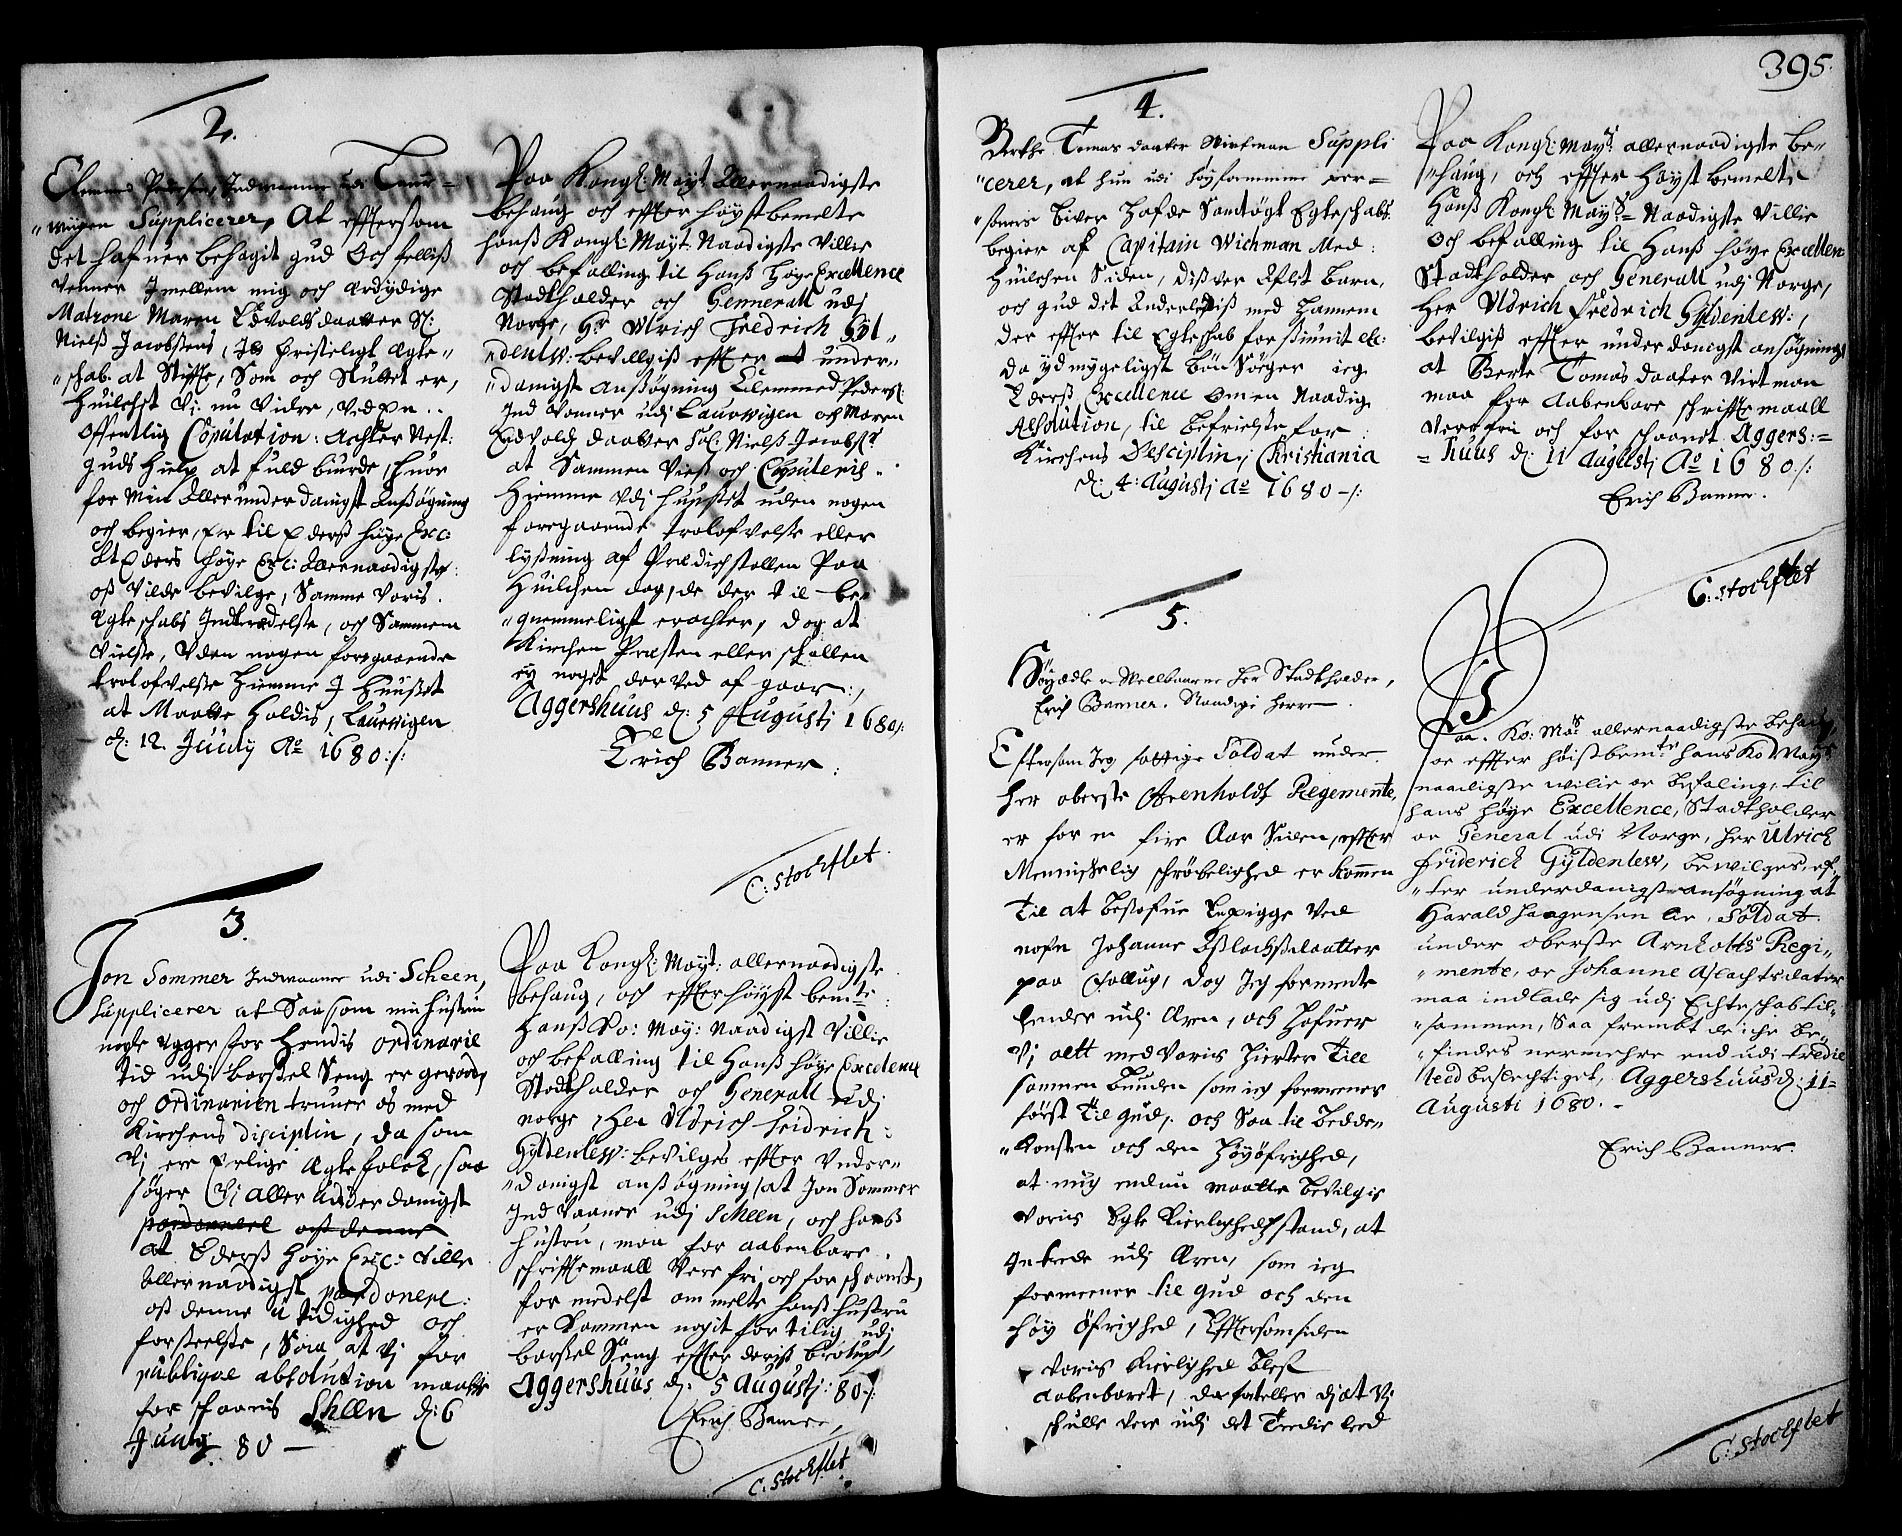 2.
Clemmed Pedersen, Indwaaner udi Laur-
"wigen Supplicerer, At effttersom
det hafuer behagit gud Och felliß
Venner Imellem mig och Erdydige
Matrone Maren Edvoldsdaatter Sl:
Nielß Jacobsens, It Christeligt Egte-
"schab at Stiffte, Som och Sluttet er,
huilchet Vj nu Vidre, Ved en
offentlig Copulation: Achter Nest:
guds hielp at fuldbiurde, huor
for Min Allerunderdanigst Ansögning
och begier, er til Ederß höye Exc:
At Eders höye Exl: Allernaadigste
oß Vilde bevilge, Samme Voris
Egteschabs Indtrædelse, och Sammem
Vielse, Uden nogen foregaaende
trolofvelse hiemme I Huuset
at Maatte holdis, Laurwigen
d: 12. Junij Ao 1680:/:
Paa Kongl: Mayt Allernaadigste
behaug och effter höystbemelte
hanß Kongl: Mayt: Naadigste Villie
och befalling til Hanß Höye Excellence
Stadtholder och Generall udj
Norge, Hr Ulrich Fredrich Gyl-
"denlew: bevilgiß effter under-
"danigst Ansögning Clemmed Pederß:
Ind Vonner udj Laurwigen och Maren
Edvoldß daatter Sal: Nielß Jacobß:
at Sammen Vieß och Copuleris
Hiemme Udj huuset uden nogen
foregaaende trolofvelse eller
lyßning af Prædichstollen Paa
Huilchen dag, de der til be-
"quemmeligst erachter, dog at
Kirchen Præsten eller schollen
ej noget derved af gaar:,
Aggershuus d: 5 Augustj 1680/:
Erich Banner:
C: Stochflet
3.
Jon Sommer Indwaaner udi Scheen,
Supplicerer at Saasom min hustru
nogle Ugger for Hendis ordinarie
tid udj barßel Seng er geraad,
och Ordinantzen truuer os med
Kirchens disciplin, da som
Vj ere Erlige Egtefolch, saa
söger Vj aller Underdanigst
pardonerel oß denne
at Ederß höye Exc: Ville
Allernaadigst pardonere:
oß denne utidighed och
forseelse, Saa at Vj for
publique absolution maatte
for schaanis Scheen d: 6
Junij 80 -
Paa Kongl: Mayt: allernaadigste
behaug, och effter höyst bemte:
Hanß Ko: May: Naadigst Villie
och befalling til Hanß höye Excelence
Stadtholder och Generall udj
norge, Her Uldrich Freidrich:
Gyldenlew: bevilges effter Under-
"danigst ansögning, at Jon Sommer
Ind Vaaner udj Scheen, och hanß
hustru, maa for aabenbare
schrifftemaall Vere fri, och for schaanet,
formedelst ommelte hanß hustru
er kommen nogit for tilig udj
barßel Seng effter deriß brölup,
Aggershuus d: 5 Augustj: 80:/:
Erich Banner,
C: Stochflet
395.
4.
Berthe Tomas daater Virtman Suppli
"cerer, at hun udi fleyfomme per-
"soners biver hafde Samtögt Egteschabs
begier af Capitain Wichman Med
huilchen Siden, dißver Aflet barn,
och gud det Anderlediß med hannem
der effter til Egteschab forßiunit etc:
da ydmygeligst bön Söger ieg
Ederß Excellence om en Naadig
Absolution, til befrielse for
Kirchens Disciplin; Christiania
d: 4: Augustj Ao 1680-/:
Paa Kongl: Mayt: allernaadigste be-
"haug, och effter höyst bemelte
Hanß Kongl: Mays:- Naadigste Villie
och befalling til Hanß höye Excellen
Stadtholder och Generall udj Norge,
Her Uldrich Fredrich Gyldenlew:,
bevilgiß effter underdanigst ansögning
at Berte Tomas daater Virtman
maa for Aabenbare schriffte maall
vere fri och for schaanet. Aggers:-
-huus d: 11 Augustj Ao 1680./:
Erich Banner.
C: Stochflet
5.
Höyædle oc Wellbaarne her Stadtholder,
Erich Banner. Naadige Herre.
Efftersom Jeg fattige Soldat under
her oberste Arenholdß Regemente,
er for en fire Aar Siden, effter
Menniskelig schröbelighed er kommen
til at besofue En pigge Ved
nafn Johanne Aßlachßdaatter
paa Follug, dog Jeg formente
hender udj Æren, och hafuer
Vj alt med Voris hierter till
sammen bunden som ieg formener
först til Gud, och Saa til bedde-
"konsten och den höyöfrighed,
at mig endnu maatte bevilgis
Voris Egte kierlighedß stand, at
Intrede udj Æren, som ieg
formeener til Gud och den
höy öfrighed, Efftersom siden
Voris kierlighed bleff
aabenbaret, da forteller di at Vj
skulle Vere udj det Tredie leed
5
Paa Ko: Mas allernaadigste behaug,
oc effter höißbemte hans Ko Mayts
naadigste wilie oc befaling, til
hans höye Excellence, Stadtholder
oc General udi Norge, her Ulrich
friderich Gyldenlew, bewilges, ef-
"ter underdanigste ansögning at
Harald Haagensen en Soldat
under oberste Arnhotts Regi-
"mente, oc Johanne Aslachtsdatter
maa indlade sig udj Echteschab til-
"sammen, Saa frembt de iche be-
"findes nermehre end udi tredie
leed beslechtiget, Aggershuus d: 11-
Augusti 1680. -
Erich Banner.
C: Stochflet